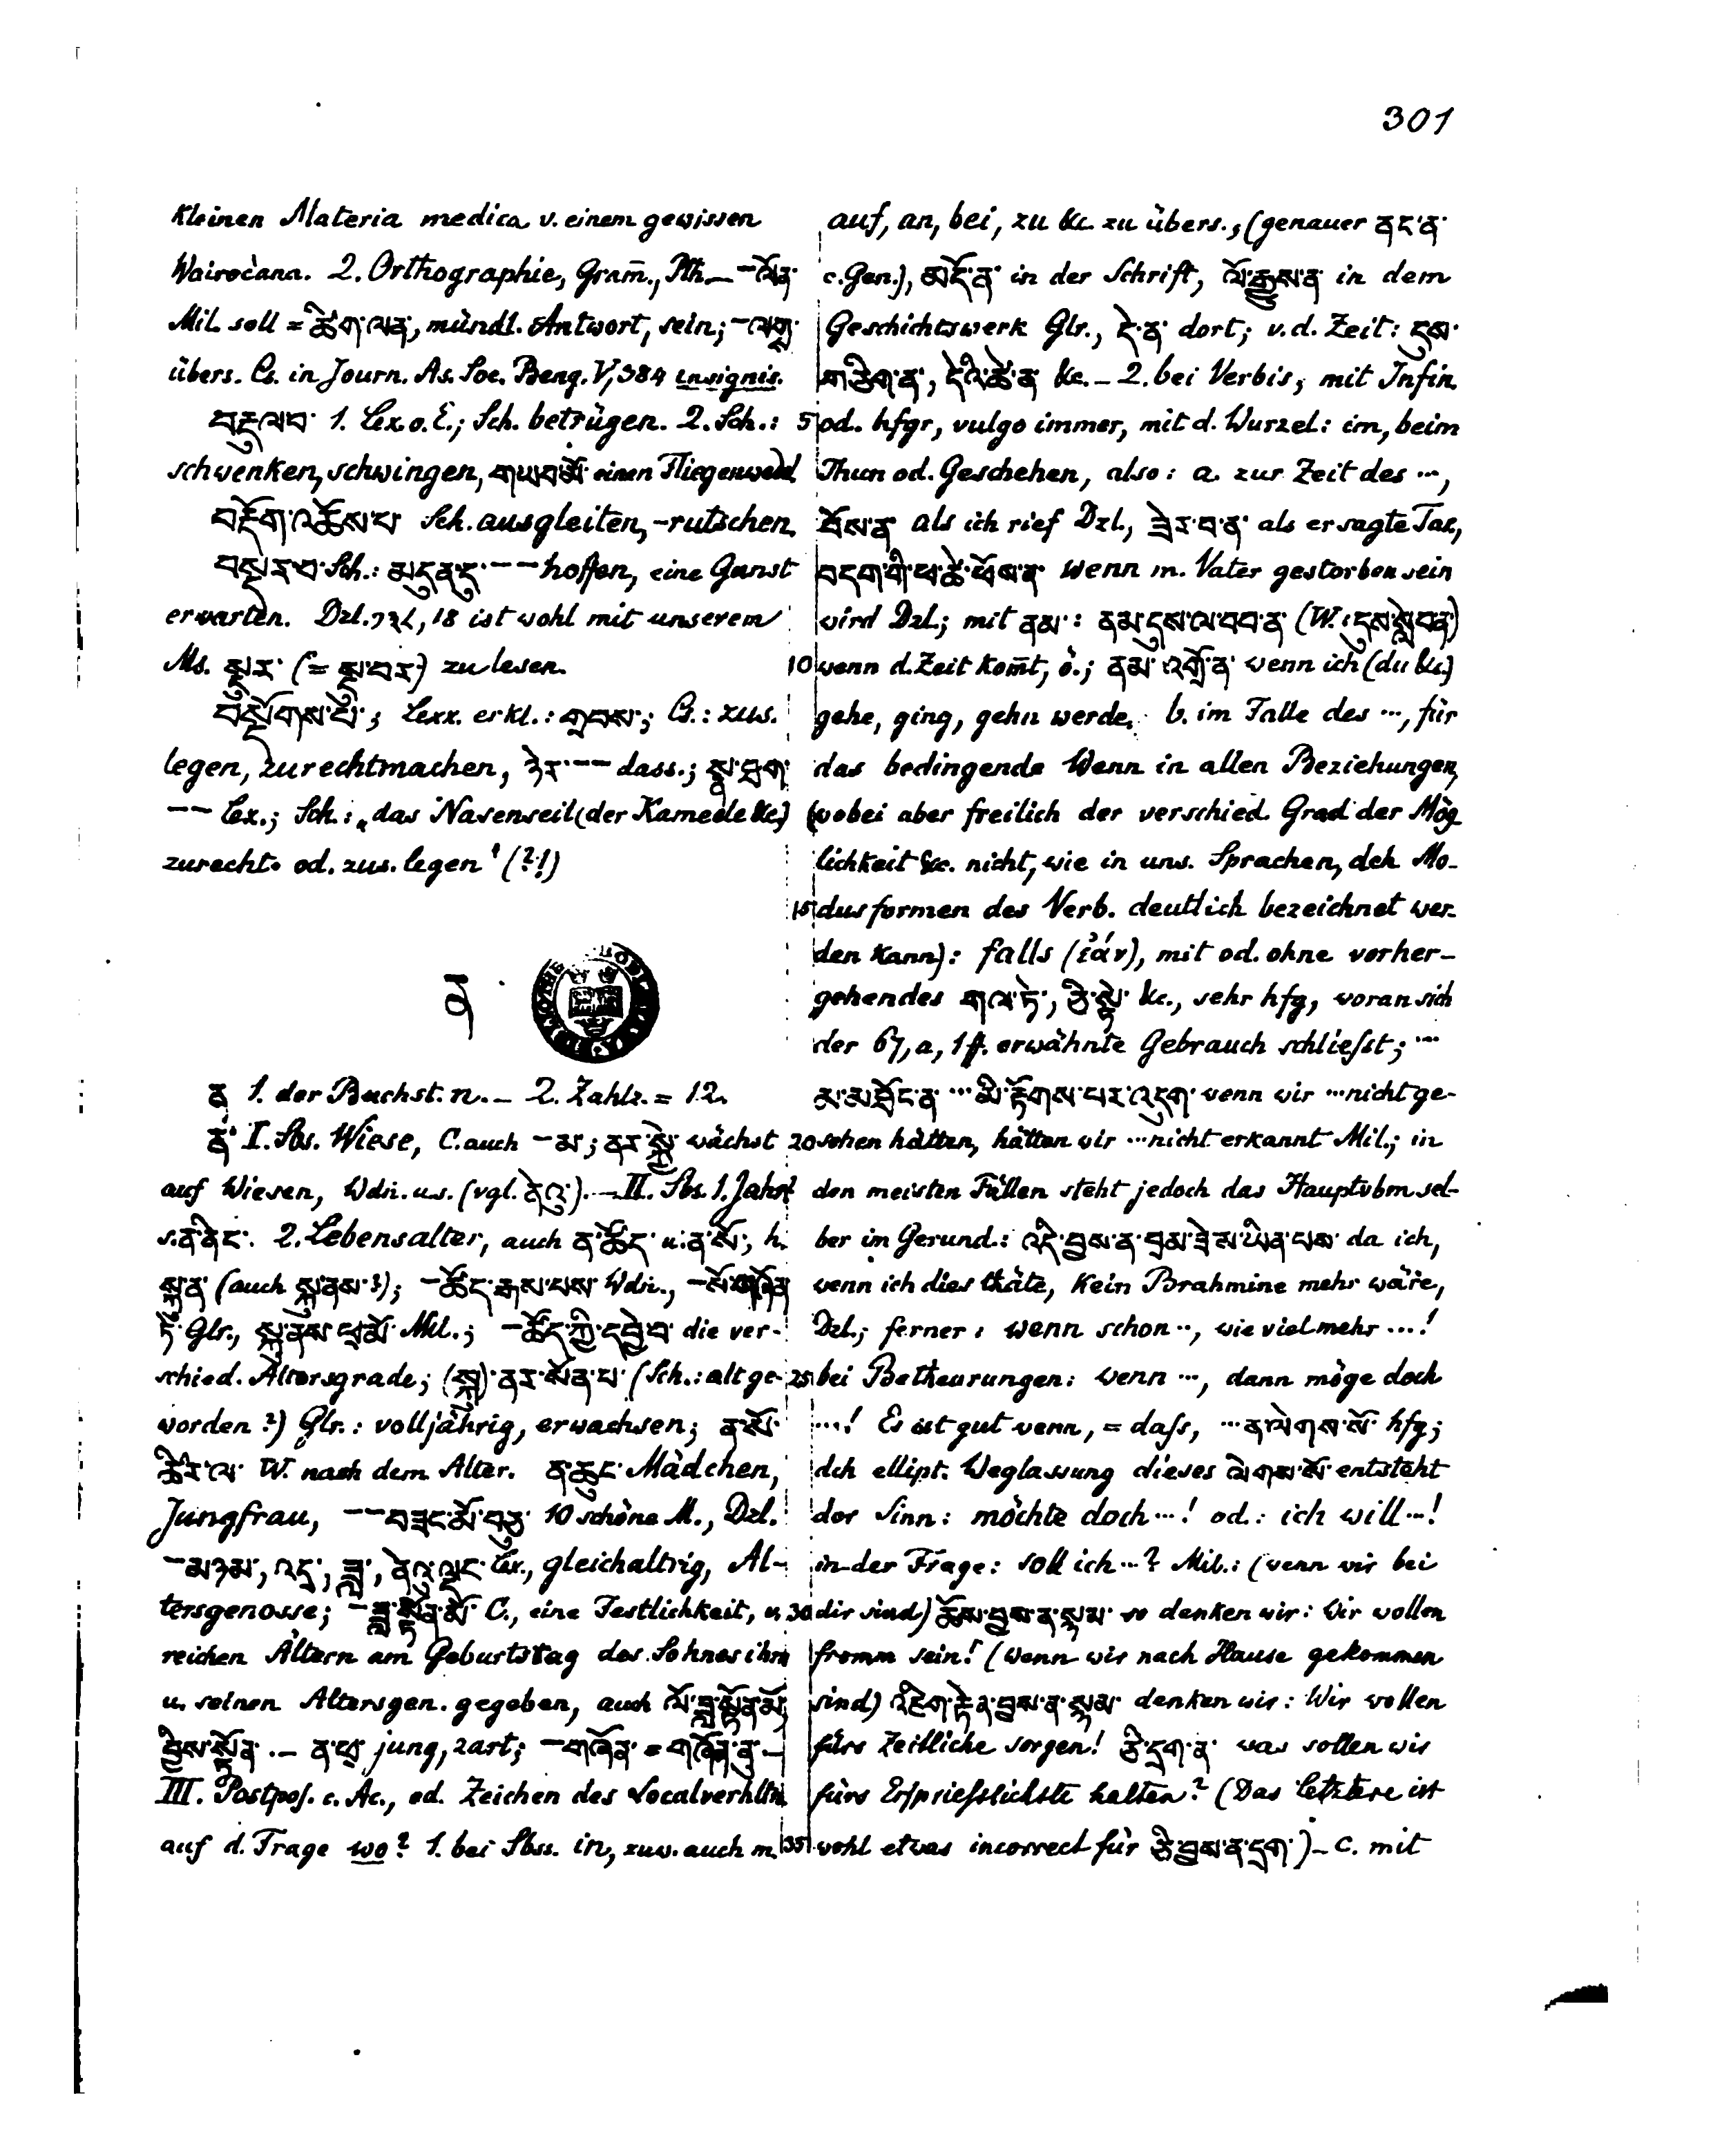 301
kleinen Materia medica v. einem gewissen
Wairočana. 2. Orthographie, Gram̄., Pth. — –ལོན་
Mil. soll = ཚིག་ལན་, mündl. Antwort, sein; –ལྡན་
übers. Cs. in Journ. As. Soc. Beng. V, 384 insignis.
བརྡལབ་ 1. Lex. o. E.; Sch. betrügen. 2. Sch.:
schwenken, schwingen, གཡབ་མོ་ einen Fliegenwedel
བརྫོག་འཆོས་པ་ Sch. ausgleiten, -rutschen.
བསྔར་བ་ Sch.: མདུན་དུ་ –– hoffen, eine Gunst
erwarten. Dzl. 18 ist wohl mit unserem
Ms. zu lesen.
Lexx. erkl.: Cs.: zus.
legen, zurechtmachen, ཉེར་ –– dass.; སྣ་ཐག་
–– Lex.; Sch.: „das Nasenseil (der Kameele &c.)
zurecht- od. zus. legen" (?!)
ན
ན 1. der Buchst. n. – 2. Zahlz. = 12.
ན་ I. Sbs. Wiese, C. auch –མ་; ནར་སྐྱེ་ wächst
auf Wiesen, Wdn. u.s. (vgl. ནེའུ་). – II. Sbs. 1. Jahr
s. ན་ནིང་. 2. Lebensalter, auch ན་ཚོད་ u. ན་སོ་, h.
སྐུ་ན་ (auch སྐུ་ནས་?); –ཚོད་རྒས་པས་ Wdn., –སོ་གཞོན་
ཏེ་ Glr., སྐུ་ནས་ཕྲ་མོ་ Mil.; –ཚོད་ཀྱི་དབྱེ་བ་ die ver-
schied. Altersgrade; (སྐུ)་ནར་སོན་པ་ (Sch.: alt ge-
worden?) Glr.: volljährig, erwachsen; ན་སོ་
ཚིར་ལ་ W. nach dem Alter. ན་ཆུང་ Mädchen,
Jungfrau, ––བཟང་མོ་བཅུ་ 10 schöne M., Dzl.
–མཉམ་, འདྲ་, ཟླ་, ནེའུ་ལྡང་ Lex., gleichaltrig, Al-
tersgenosse; –ཟླ་སྟོན་མོ་ C., eine Festlichkeit, v.
reichen Ältern am Geburtstag des Sohnes ihm
u. seinen Altersgen. gegeben, auch ལོ་ཟླ་སྟོན་མོ,
བྱིས་སྟོན་. – ན་ཕྲ་ jung, zart; –གཞོན་ = གཞོན་ནུ་ –
III. Postpos. c. Ac., od. Zeichen des Localverhltn.
auf d. Frage wo? 1. bei Sbss. in, zuw. auch m.
auf, an, bei, zu &c. zu übers., (genauer ནང་ན་
c. Gen.), མདོ་ན་ in der Schrift, ལོ་རྒྱུས་ན་ in dem
Geschichtswerk Glr., དེ་ན་ dort; v. d. Zeit: དུས་
གཅིག་ན་, དེའི་ཚེ་ན་ &c. – 2. bei Verbis, mit Infin.
5 od. hfgr, vulgo immer, mit d. Wurzel: im, beim
Thun od. Geschehen, also: a. zur Zeit des ···,
བོས་ན་ als ich rief Dzl., ཟེར་བ་ན་ als er sagte Tar.,
བདག་གི་ཕ་ཚེ་ཕོས་ན་ wenn m. Vater gestorben sein
wird Dzl.; mit ནམ་: ནམ་དུས་ལ་བབ་ན་ (W.: དུས་སླེབ་ན་)
10 wenn d. Zeit kom̄t, ö.; ནམ་འགྲོ་ན་ wenn ich (du &c.)
gehe, ging, gehn werde. b. im Falle des ···, für
das bedingende Wenn in allen Beziehungen,
(wobei aber freilich der verschied. Grad der Mög
lichkeit &c. nicht, wie in uns. Sprachen, dch Mo-
15 dusformen des Verb. deutlich bezeichnet wer-
den kann): falls (ἐάν), mit od. ohne vorher-
gehendes གལ་ཏེ་, ཅི་སྟེ་ &c., sehr hfg, woran sich
der 67, a, 1 ff. erwähnte Gebrauch schliesst; ···
མ་མཐོང་ན་ ··· མི་རྟོགས་པར་འདུག་ wenn wir ··· nicht ge-
20 sehen hätten, hätten wir ··· nicht erkannt Mil.; in
den meisten Fällen steht jedoch das Hauptvbm sel-
ber im Gerund.: འདི་བྱས་ན་བྲམ་ཟེ་མ་ཡིན་པས་ da ich,
wenn ich dies thäte, kein Brahmine mehr wäre,
Dzl.; ferner: wenn schon ··, wie viel mehr ···!
25 bei Betheurungen: wenn ···, dann möge doch
···! Es ist gut wenn, = dass, ··· ན་ལེགས་སོ་ hfg;
dch ellipt. Weglassung dieses ལེགས་སོ་ entsteht
der Sinn: möchte doch ···! od.: ich will ···!
in der Frage: soll ich ···? Mil.: (wenn wir bei
30 dir sind) ཆོས་བྱས་ན་སྙམ་ so denken wir: Wir wollen
fromm sein! (wenn wir nach Hause gekommen
sind) འཇིག་རྟེན་བྱས་ན་སྙམ་ denken wir: Wir wollen
fürs Zeitliche sorgen! ཅི་དྲག་ན་ was sollen wir
fürs Erspriesslichste halten? (Das letztere ist
35 wohl etwas incorrect für ཅི་བྱས་ན་དྲག་) – c. mit